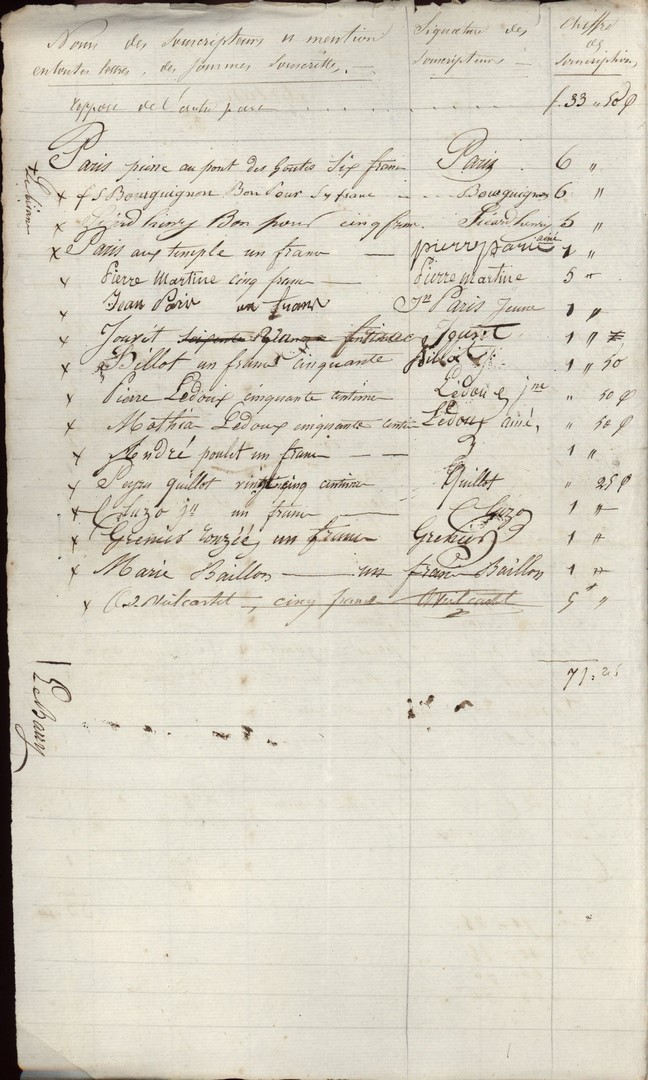 Noms des Souscripteurs et mention Signature des Chiffre
en toutes lettres, des sommes souscrites. Souscripteurs des
Souscriptions
Report de l'autre part f. 33 " 50 c
Paris pierre au pont des Goutes Six franc Paris 6 "
x f S Bourguignon Bon Pour Sy franc Bourguignon 6 "
x henry Bon pour cinq franc henry 5 "
x Paris aux temple un franc pierre paris ainé 1 "
x Pierre Martine cinq franc Pierre martine 5 "
x Jean Paris un franc Jn Paris Jeune 1 "
x Jouxit 1 "
x Billot un franc cinquante Billot 1 " 50
x Pierre Ledoux cinquante centime Ledoux jne " 50 c
x Mathia Ledoux cinquante centi Ledoux ainé, " 50 c
x André poulet un franc 1 "
x quillot vingt cinq centime Quillot " 25 c
x Suzo jn un franc Suzo 1 "
x Grenier un franc Grenier 1 "
x Marie Baillon un franc Baillon 1 "
x cinq franc 5 "
71 : 25